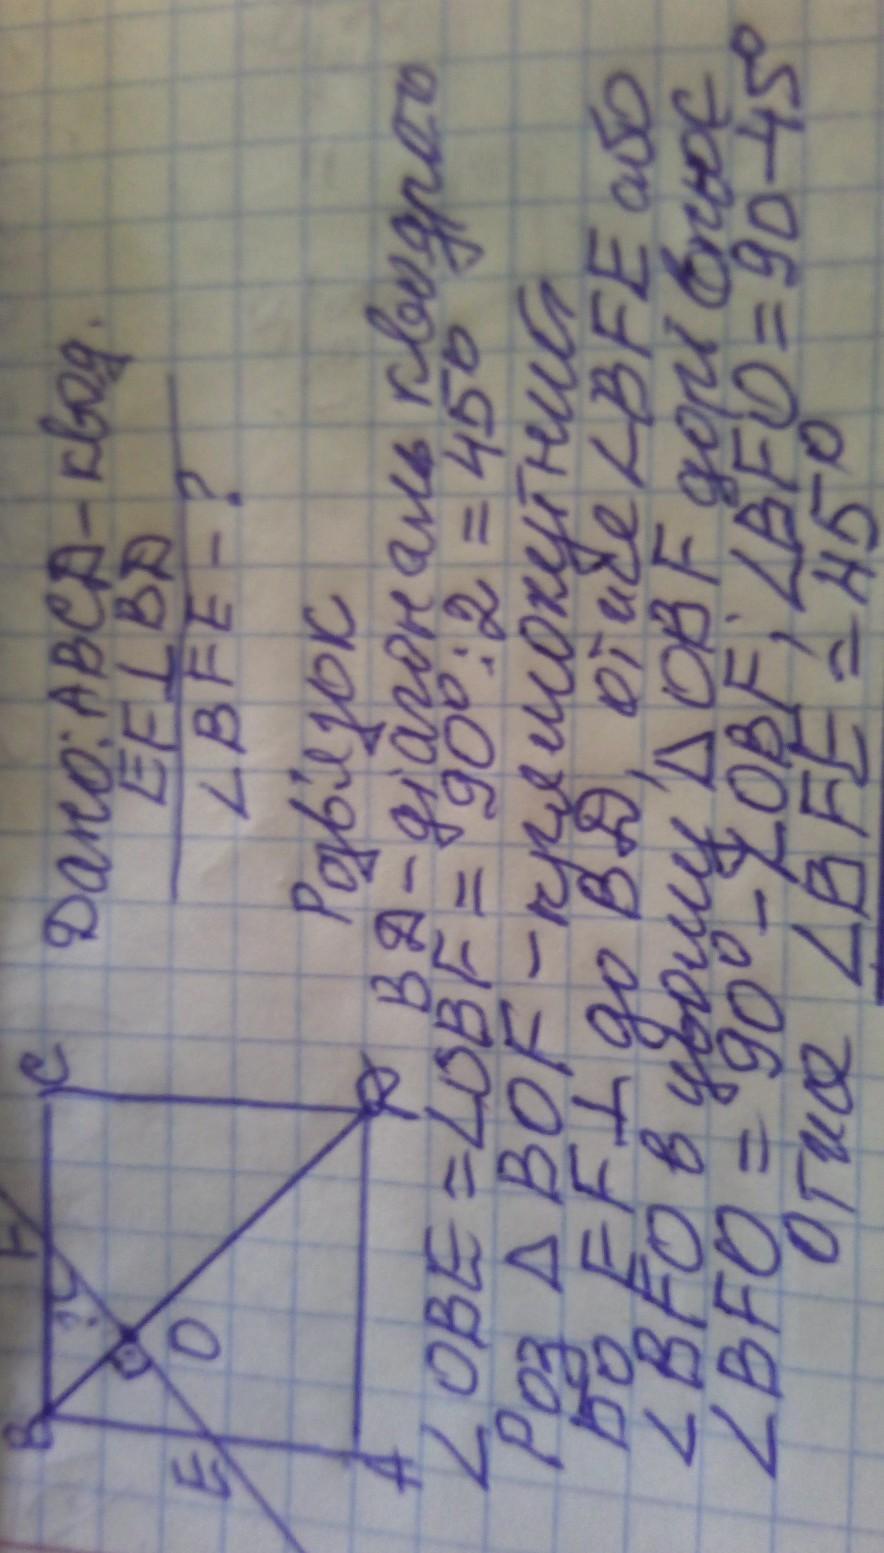 B
F
C
?
O
E
A
D
Дано: ABCД - квад.
EF⊥BД
∠BFE - ?
Розв'язок
BД - діагональ квадрата
∠OBE = ∠OBF = 90°:2 = 45°
Роз △ BOF - прямокутний
бо EF⊥ до BД, отже ∠BFE або
∠BFO в цьому △ OBF дорівнює
∠BFO = 90° - ∠OBF, ∠BFO = 90-45°
Отже ∠BFE = 45°